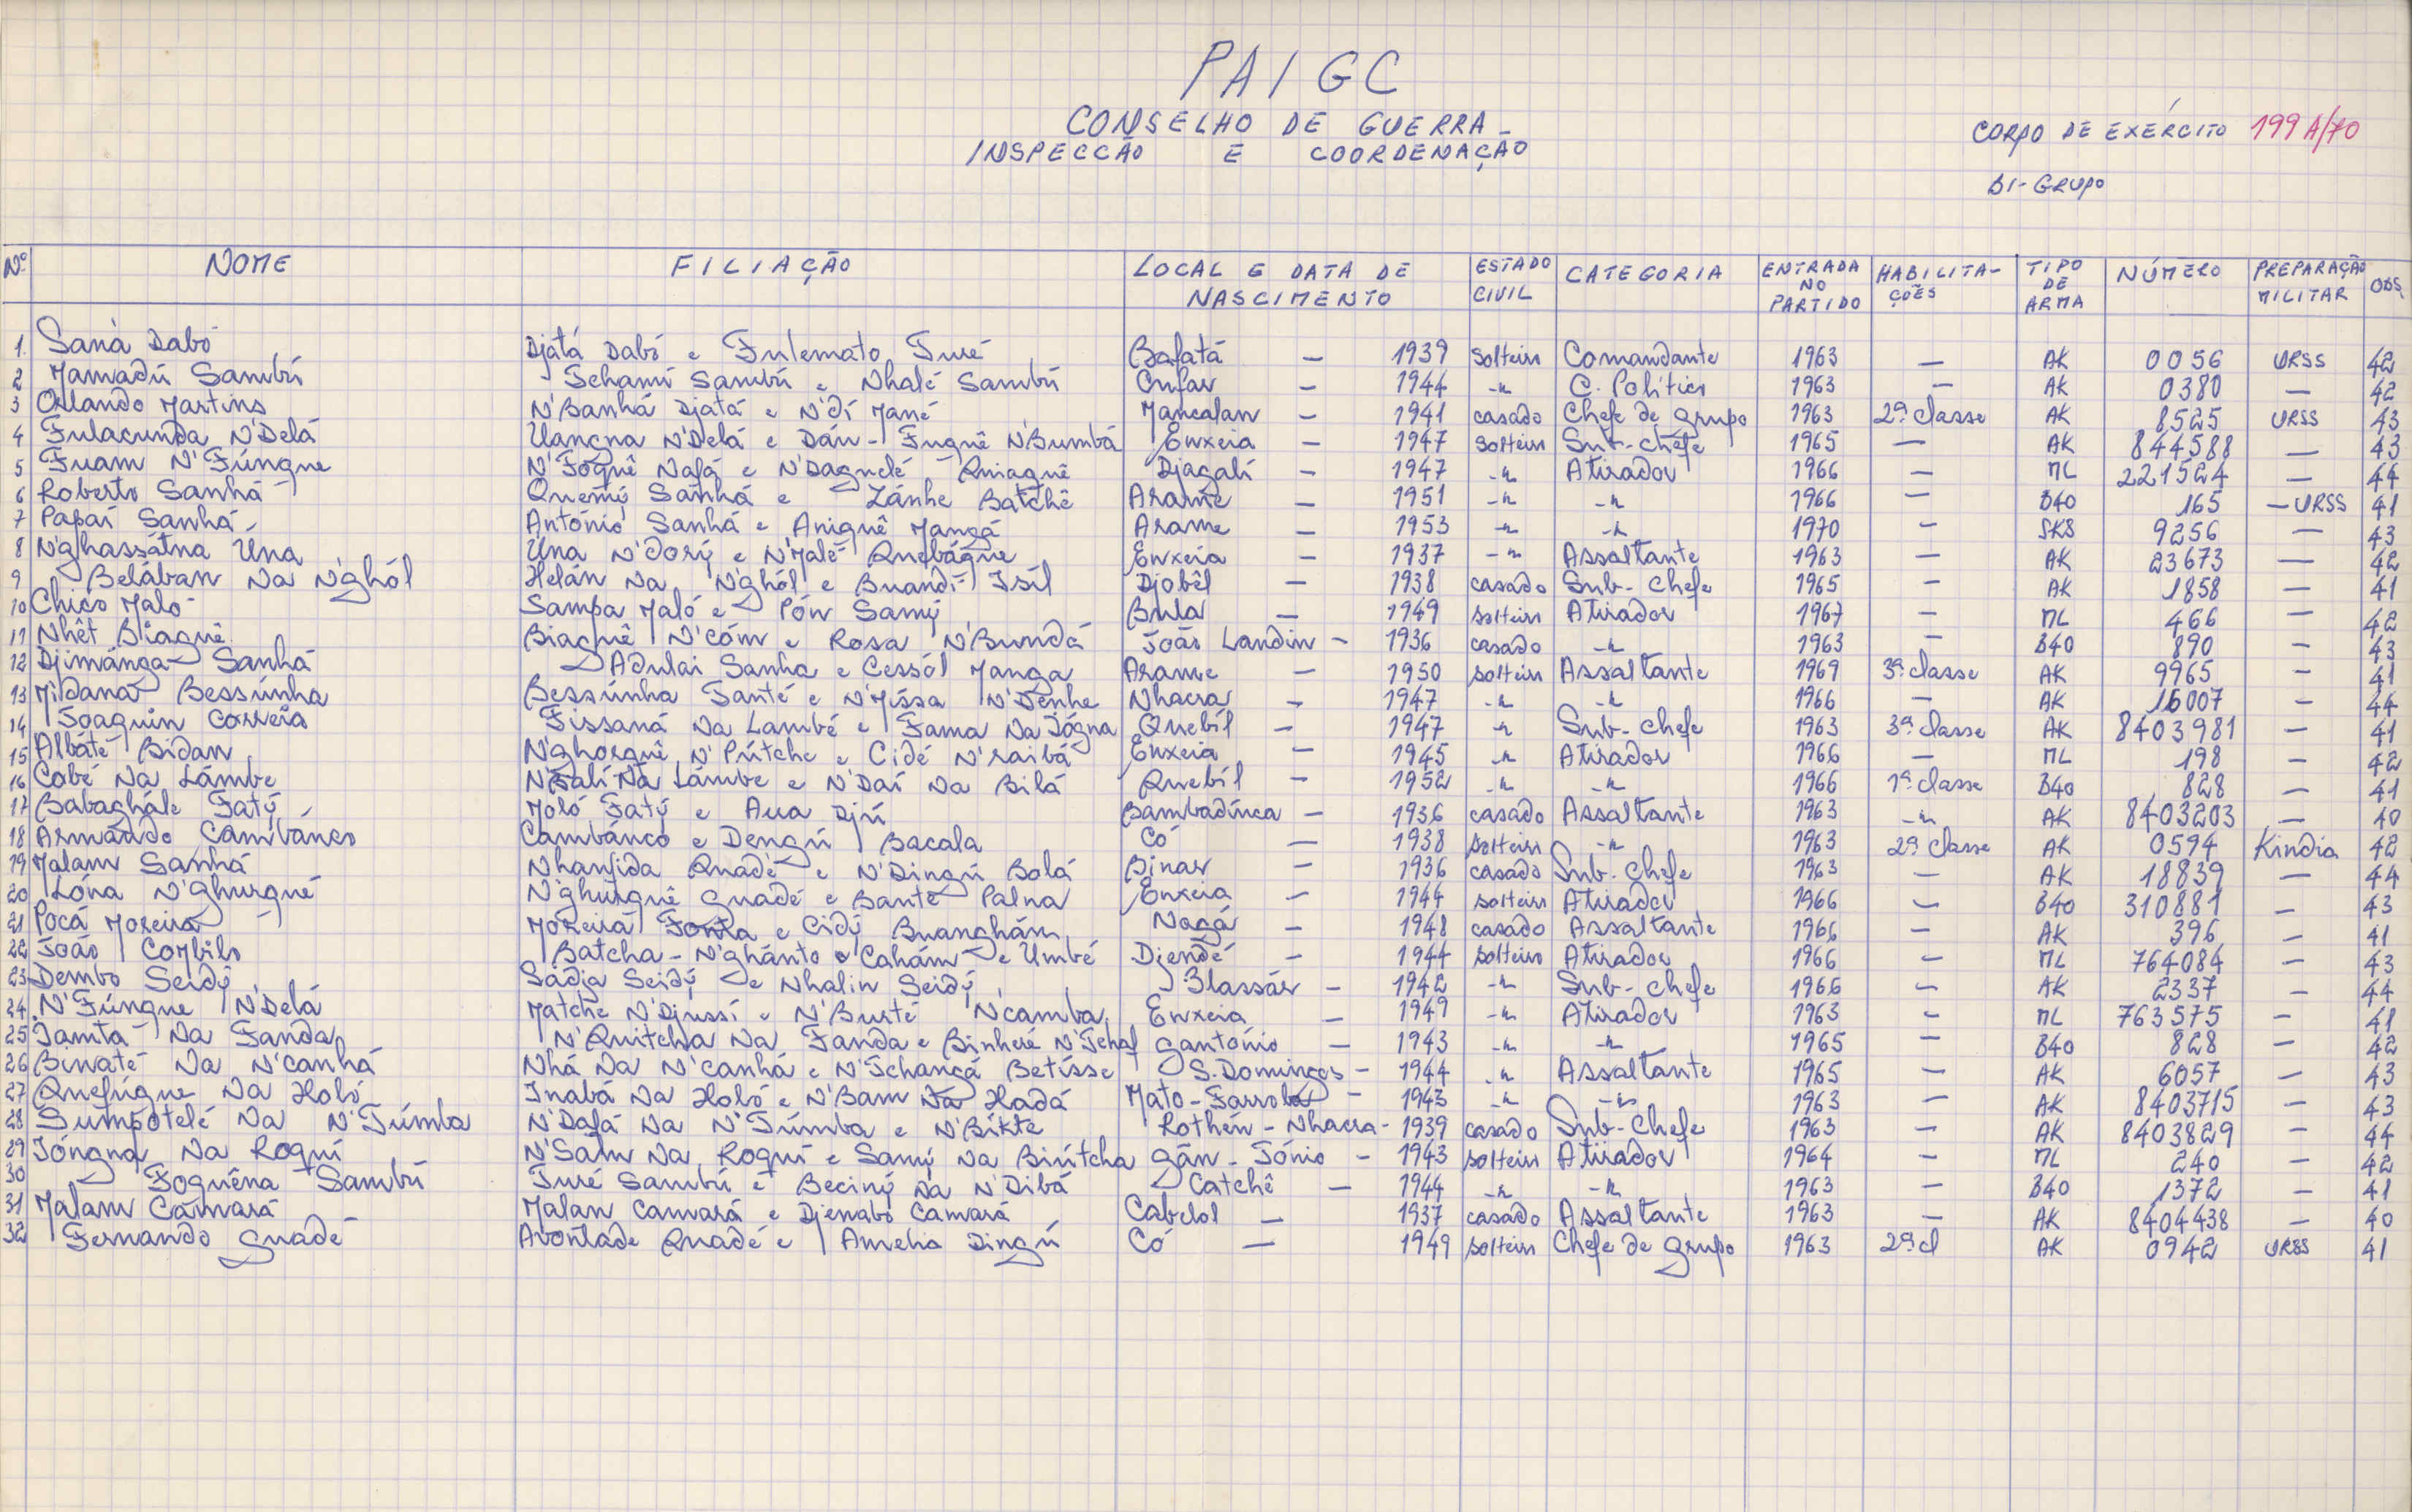 PAIGC
CONSELHO DE GUERRA
INSPECCÃO E COORDENAÇÃO
CORPO DE EXÉRCITO 199A/70
BI-GRUPO
Nº NOME FILIAÇÃO LOCAL E DATA DE NASCIMENTO ESTADO CIVIL CATEGORIA ENTRADA NO PARTIDO HABILITAÇÕES TIPO DE ARMA NÚMERO PREPARAÇÃO MILITAR OBS
1 Saná Dabó Djatá Dabó e Fulemato Turé Bafatá — 1939 solteiro Comandante 1963 — AK 0056 URSS 42
2 Mamadú Sambú Tchamí Sambú e Nhalé Sambú Cufar — 1944 -"- C. Político 1963 — AK 0380 — 42
3 Orlando Martins N'Banhá Djatá e N'dí Mané Mancalan — 1941 casado Chefe de grupo 1963 2ª classe AK 8525 URSS 43
4 Fulacunda N'Delá Uangna N'Delá e Dán-Fuguê N'Bumbá Enxeia — 1947 solteiro Sub-chefe 1965 — AK 844588 — 43
5 Fuam N'Fúngue N'Foguê Nafá e N'Dagnelé Quiaguê Djagalí — 1947 -"- Atirador 1966 — ML 221524 — 44
6 Roberto Sanhá Quemý Sanhá e Zánhe Batchê Arame — 1951 -"- -"- 1966 — B40 165 — URSS 41
7 Papaí Sanhá António Sanhá e Aniguê Mangá Arame — 1953 -"- -"- 1970 — SKS 9256 — 43
8 N'ghassátna Una Una N'dorý e N'Malé Quebágne Enxeia — 1937 -"- Assaltante 1963 — AK 23673 — 42
9 Belában Na N'ghól Helán Na N'ghól e Buandí Isíl Djobêl — 1938 casado Sub-chefe 1965 — AK 1858 — 41
10 Chico Maló Sampa Maló e Pón Samý Bula — 1949 solteiro Atirador 1967 — ML 466 — 42
11 Nhêt Biaguê Biaguê N'cóm e Rosa N'Bundá João Landin — 1936 casado -"- 1963 — B40 890 — 43
12 Djimánga Sanhá Adulai Sanha e Cessól Manga Arame — 1950 solteiro Assaltante 1969 3ª classe AK 9965 — 41
13 Midaná Bessúnha Bessúnha Santé e N'Míssa N'Denhe Nhacra — 1947 -"- -"- 1966 — AK 16007 — 44
14 Joaquin Correia Fissaná Na Lambé e Fama Na Iógna Quebíl — 1947 -"- Sub-chefe 1963 3ª classe AK 8403981 — 41
15 Albáté Bidan N'ghorguê N'Pútche e Cidé N'raibá Enxeia — 1945 -"- Atirador 1966 — ML 198 — 42
16 Cabé Na Lámbe N'Salí Na Lámbe e N'Daí Na Bilá Quebíl — 1952 -"- -"- 1966 1ª classe B40 828 — 41
17 Babaghále Fatý Moló Fatý e Aua Djú Bambadinca — 1936 casado Assaltante 1963 -"- AK 8403203 — 40
18 Armando Cambánco Cambánco e Dengú Bacala Có — 1938 solteiro -"- 1963 2ª classe AK 0594 Kindia 42
19 Malam Sanhá Nhanjida Quadé e N'Dingú Balá Binar — 1936 casado Sub-Chefe 1963 — AK 18839 — 44
20 Lóna N'Ghurgué N'ghurguê Guadé e Bante Palna Enxeia — 1944 solteiro Atirador 1966 — B40 310881 — 43
21 Pocá Moreira Moreira e Cidý Buanghám Nagá — 1948 casado Assaltante 1966 — AK 396 — 41
22 João Batcha-N'ghánto e Cahám e Umbé Djendé — 1944 solteiro Atirador 1966 — ML 764084 — 43
23 Dembo Seidý Sádja Seidý e Nhalin Seidý Blassár — 1942 -"- Sub-chefe 1966 — AK 2337 — 44
24 N'Fúngue N'Delá Matche N'Djussí e N'Burté N'camba Enxeia — 1949 -"- Atirador 1963 — ML 763575 — 41
25 Tamta Na Fanda N'Quitcha Na Fanda e Binheré N'Tchaf Gantónio — 1943 -"- -"- 1965 — B40 828 — 42
26 Binaté Na N'canhá Nhá Na N'canhá e N'Tchangá Betísse S. Domingos — 1944 -"- Assaltante 1965 — AK 6057 — 43
27 Quefúgue Na Holó Inabá Na Holó e N'Bam Na Hadá Mato-Farroba — 1943 -"- -"- 1963 — AK 8403715 — 43
28 Sumpotelé Na N'Túmba N'Dafá Na N'Túmba e N'Bíkte Rothén-Nhacra — 1939 casado Sub-Chefe 1963 — AK 8403829 — 44
29 Ióngna Na Roquí N'Sám Na Roquí e Samý Na Biútcha Gãn-Tónio — 1943 solteiro Atirador 1964 — ML 240 — 42
30 Foguêna Sambú Turé Sambú e Beciný Na N'Dibá Catchê — 1944 -"- -"- 1963 — B40 1372 — 41
31 Malam Camará Malan Camará e Djenabo Camará Cabelol — 1937 casado Assaltante 1963 — AK 8404438 — 40
32 Fernando Guadé Avontade Quadé e Amelia Dingú Có — 1949 solteiro Chefe de grupo 1963 2ª cl AK 0942 URSS 41